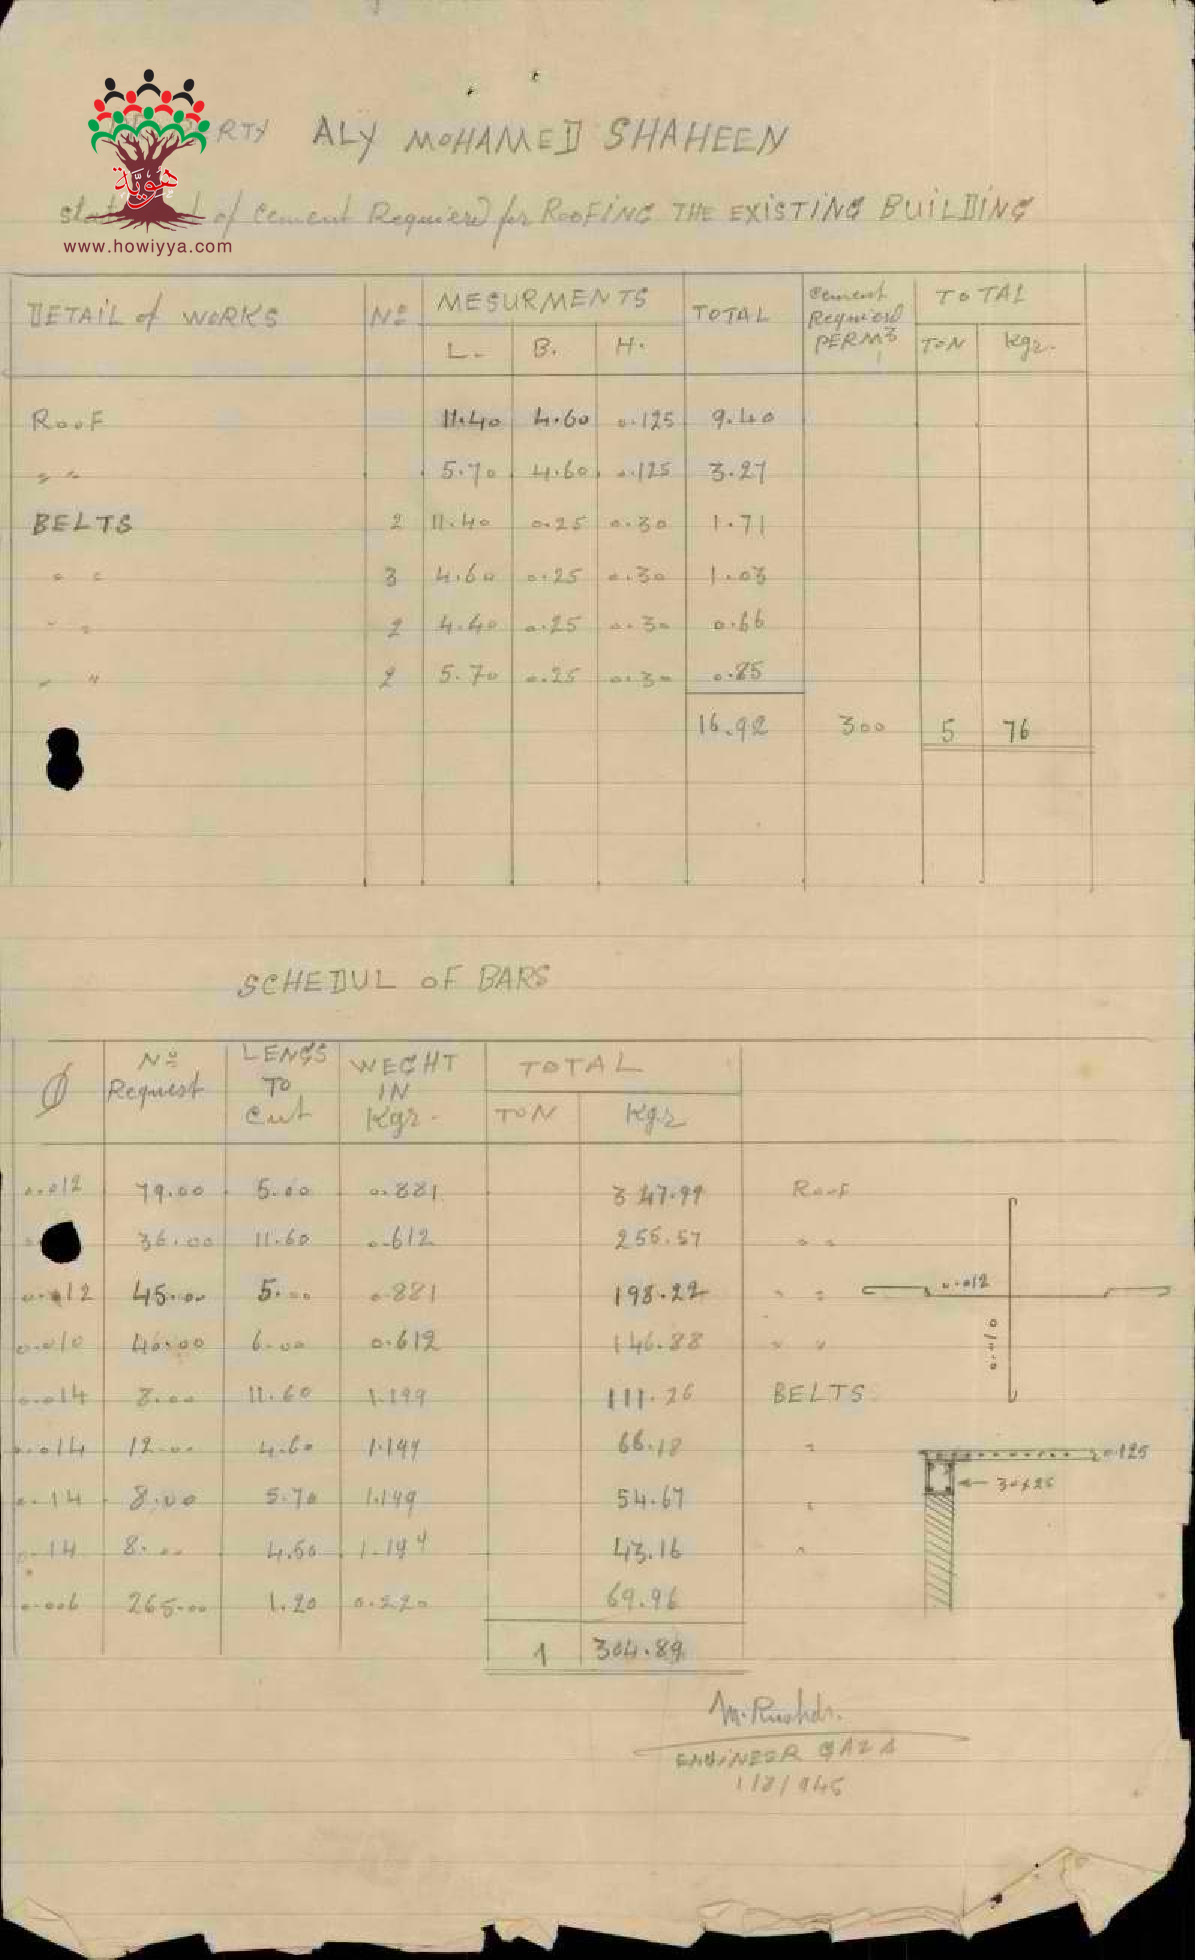 RTY ALY MOHAMED SHAHEEN
هوية
www.howiyya.com
of Cement Requierd for ROOFING THE EXISTING BUILDING
DETAIL of WORKS No MESURMENTS TOTAL Cement Requierd PERM3 TOTAL
L. B. H. TON Kgr.
ROOF 11.40 4.60 0.125 9.40
" " 5.70 4.60 0.125 3.27
BELTS 2 11.40 0.25 0.30 1.71
" " 3 4.60 0.25 0.30 1.03
" " 2 4.40 0.25 0.30 0.66
" " 2 5.70 0.25 0.30 0.85
16.92 300 5 76
SCHEDUL OF BARS
Ø No Request LENGS TO Cut WEGHT IN Kgr. TOTAL
TON Kgr
0.012 79.00 5.00 0.881 347.99 ROOF
36.00 11.60 0.612 255.57 " "
0.012 45.00 5.00 0.881 198.22 " "
0.012
0.010 40.00 6.00 0.612 146.88 " "
0.010
0.014 8.00 11.60 1.199 111.26 BELTS
0.014 12.00 4.60 1.199 66.18 "
0.125
0.14 8.00 5.70 1.199 54.67 "
30x25
0.14 8.00 4.50 1.199 43.16 "
0.006 265.00 1.20 0.220 69.96
1 304.89
M. Rushdi.
ENGINEER GAZA
1/8/945